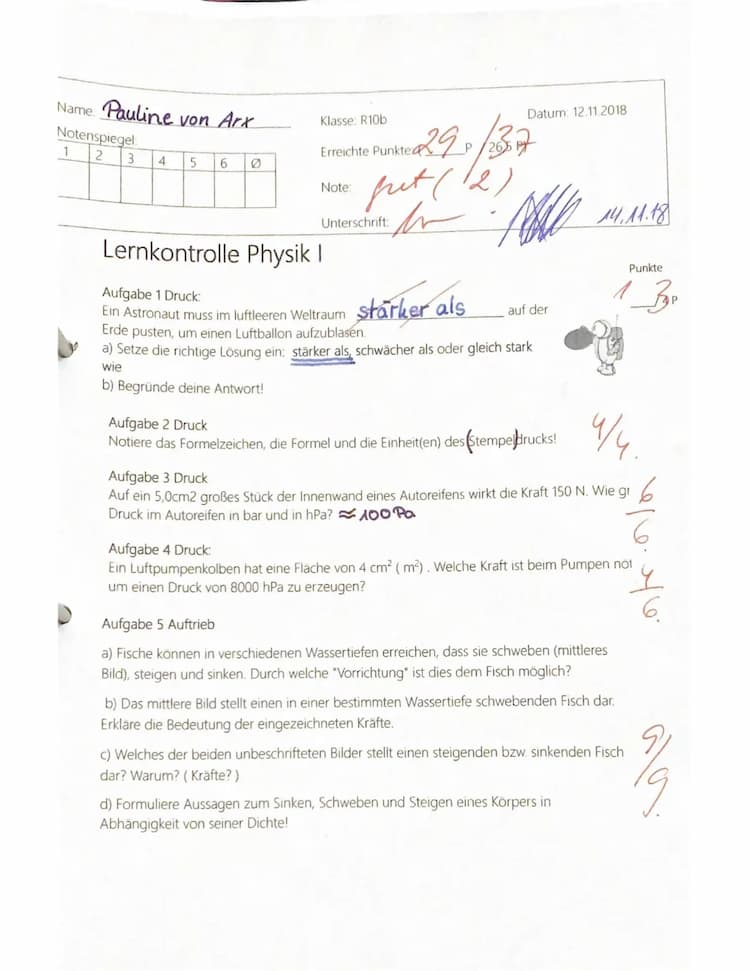 Name: Pauline von Arx
Klasse: R10b
Datum: 12.11.2018
Notenspiegel:
1 2 3 4 5 6 Ø
Erreichte Punkte: 29 P / 37
Note: gut (2)
Unterschrift:
14.11.18
Lernkontrolle Physik I
Punkte
Aufgabe 1 Druck:
1 3 P
Ein Astronaut muss im luftleeren Weltraum stärker als auf der
Erde pusten, um einen Luftballon aufzublasen.
a) Setze die richtige Lösung ein: stärker als, schwächer als oder gleich stark
wie
b) Begründe deine Antwort!
Aufgabe 2 Druck
Notiere das Formelzeichen, die Formel und die Einheit(en) des (Stempel)drucks!
4/4.
Aufgabe 3 Druck
Auf ein 5,0cm2 großes Stück der Innenwand eines Autoreifens wirkt die Kraft 150 N. Wie gr
Druck im Autoreifen in bar und in hPa? ≈100Pa
6/6.
Aufgabe 4 Druck:
Ein Luftpumpenkolben hat eine Fläche von 4 cm² ( m²) . Welche Kraft ist beim Pumpen not
um einen Druck von 8000 hPa zu erzeugen?
4/6.
Aufgabe 5 Auftrieb
a) Fische können in verschiedenen Wassertiefen erreichen, dass sie schweben (mittleres
Bild), steigen und sinken. Durch welche "Vorrichtung" ist dies dem Fisch möglich?
b) Das mittlere Bild stellt einen in einer bestimmten Wassertiefe schwebenden Fisch dar.
Erkläre die Bedeutung der eingezeichneten Kräfte.
c) Welches der beiden unbeschrifteten Bilder stellt einen steigenden bzw. sinkenden Fisch
dar? Warum? ( Kräfte? )
9/9.
d) Formuliere Aussagen zum Sinken, Schweben und Steigen eines Körpers in
Abhängigkeit von seiner Dichte!